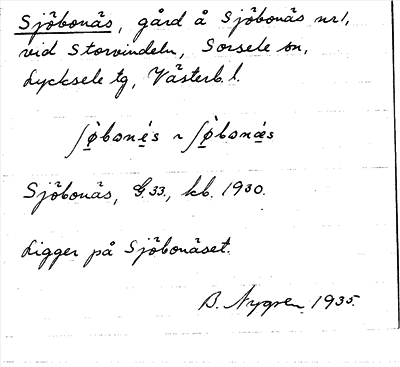 Sjöbonäs, gård å Sjöbonäs nr 1,
vid Storvindeln, Sorsele sn,
Lycksele tg, Västerb. l.
ʃø̀bonés ~ ʃø̀bonæs
Sjöbonäs, G. 33, kb. 1930.
Ligger på Sjöbonäset.
B. Nygren 1935.